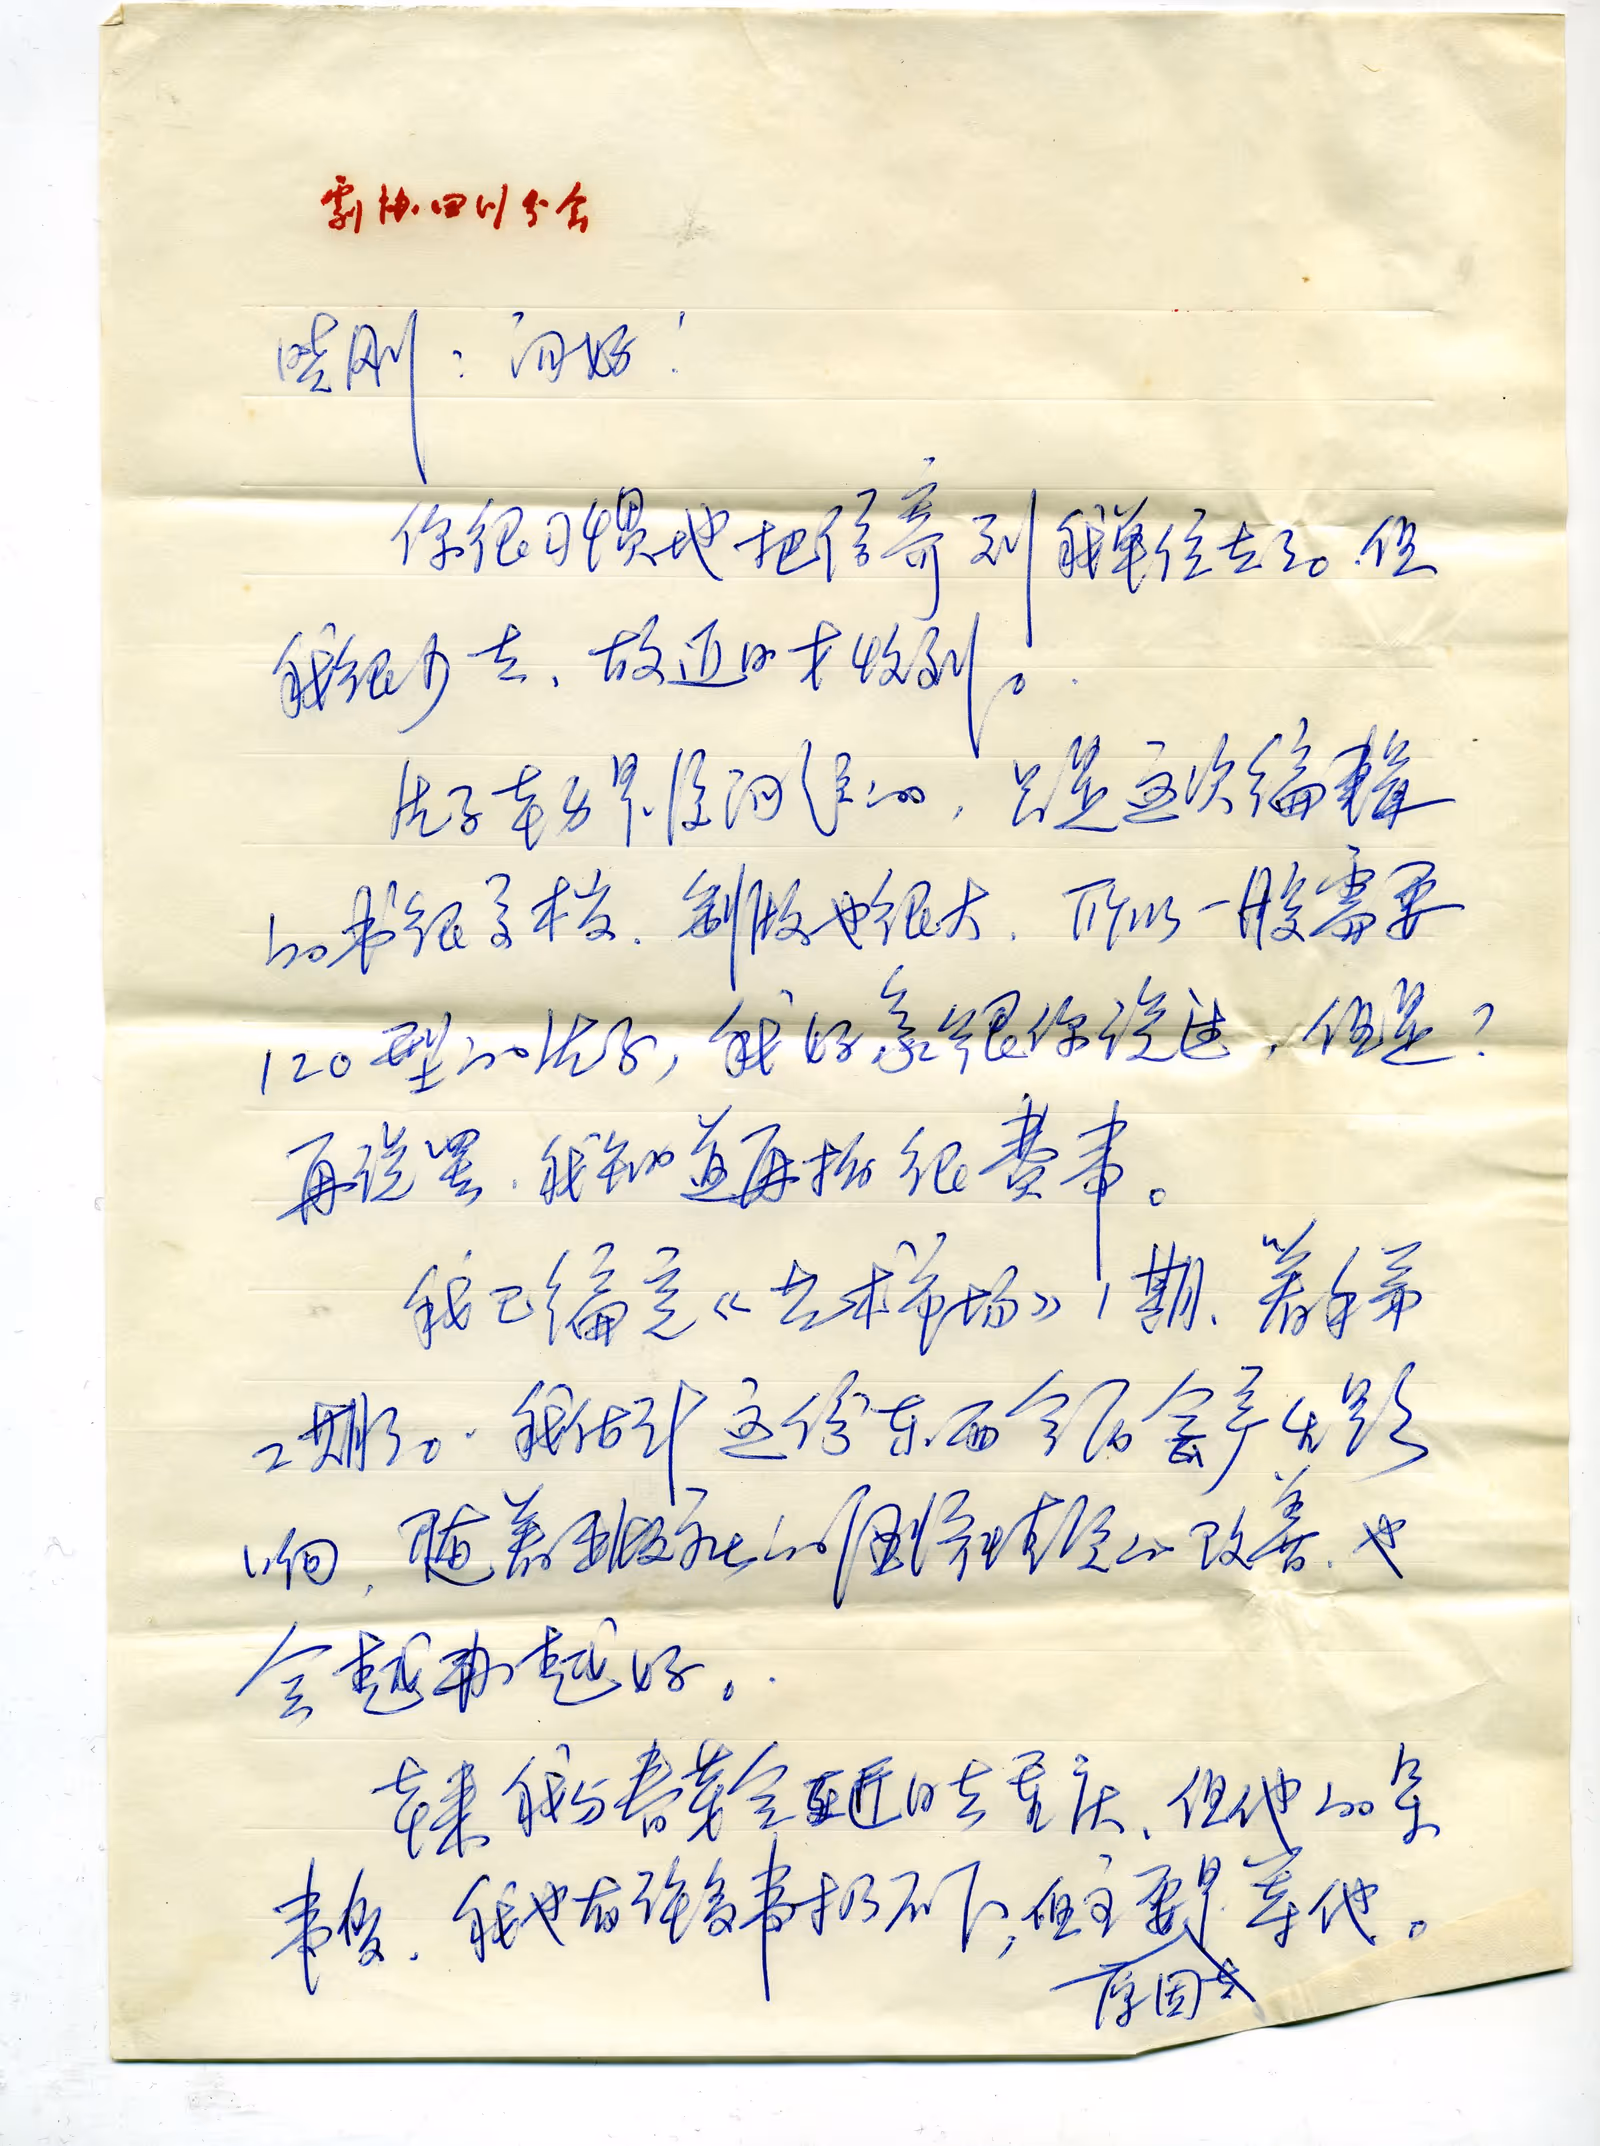 剧协四川分会
晓刚：问好！
你很习惯地把信寄到我单位去了。但
我很少去、故近日才收到。
片子本身是没问题的，只是这次编辑
的书很考校、制版也很大、所以一般需要
120型的片子，我好象跟你说过，但是？
再说罢、我知道再拍很费事。
我已编完《艺术市场》1期、着手第
2期了。我估计这份东西今后会产生影
响，随着出版社的困难情况的改善、也
会越办越好。
本来我与春芽会在近日去重庆、但他的杂
事多、我也有许多事扔不下，但主要是等他。
原因